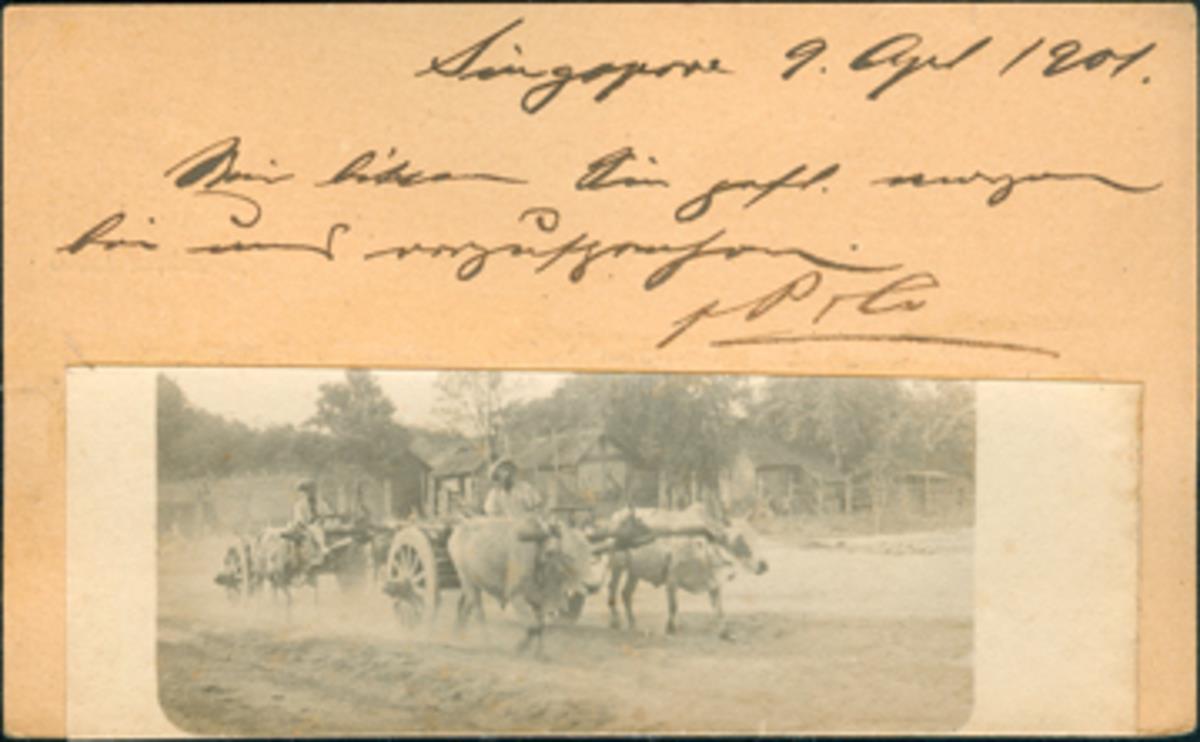 Singapore 9. April 1901.
Wir bitten Sie gefl. morgen
bei uns vorzusprechen.
P & Co